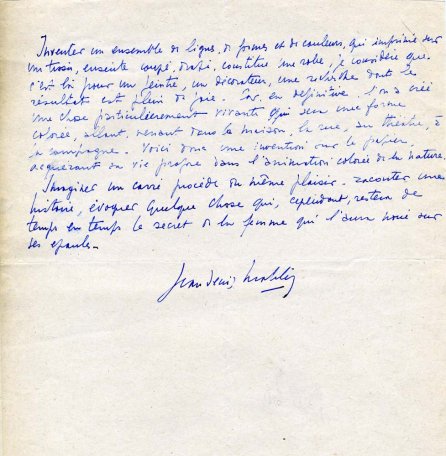 Inventer un ensemble de lignes, de formes et de couleurs, qui imprimé sur
un tissu, ensuite coupé, drapé, constitue une robe, je considère que
c'est là pour un peintre, un décorateur, une recherche dont le
résultat est plein de joie. Car, en définitive l'on a créé
une chose particulièrement vivante qui sera une forme
colorée, allant, venant dans la maison, la rue, au théâtre, à
la campagne. Voici donc une invention sur le papier,
acquérant sa vie propre dans l'animation colorée de la nature.
Imaginer un carré procède du même plaisir. raconter une
histoire, évoquer quelque chose qui, cependant, restera de
temps en temps le secret de la femme qui l'aura noué sur
ses épaules.
Jean Denis